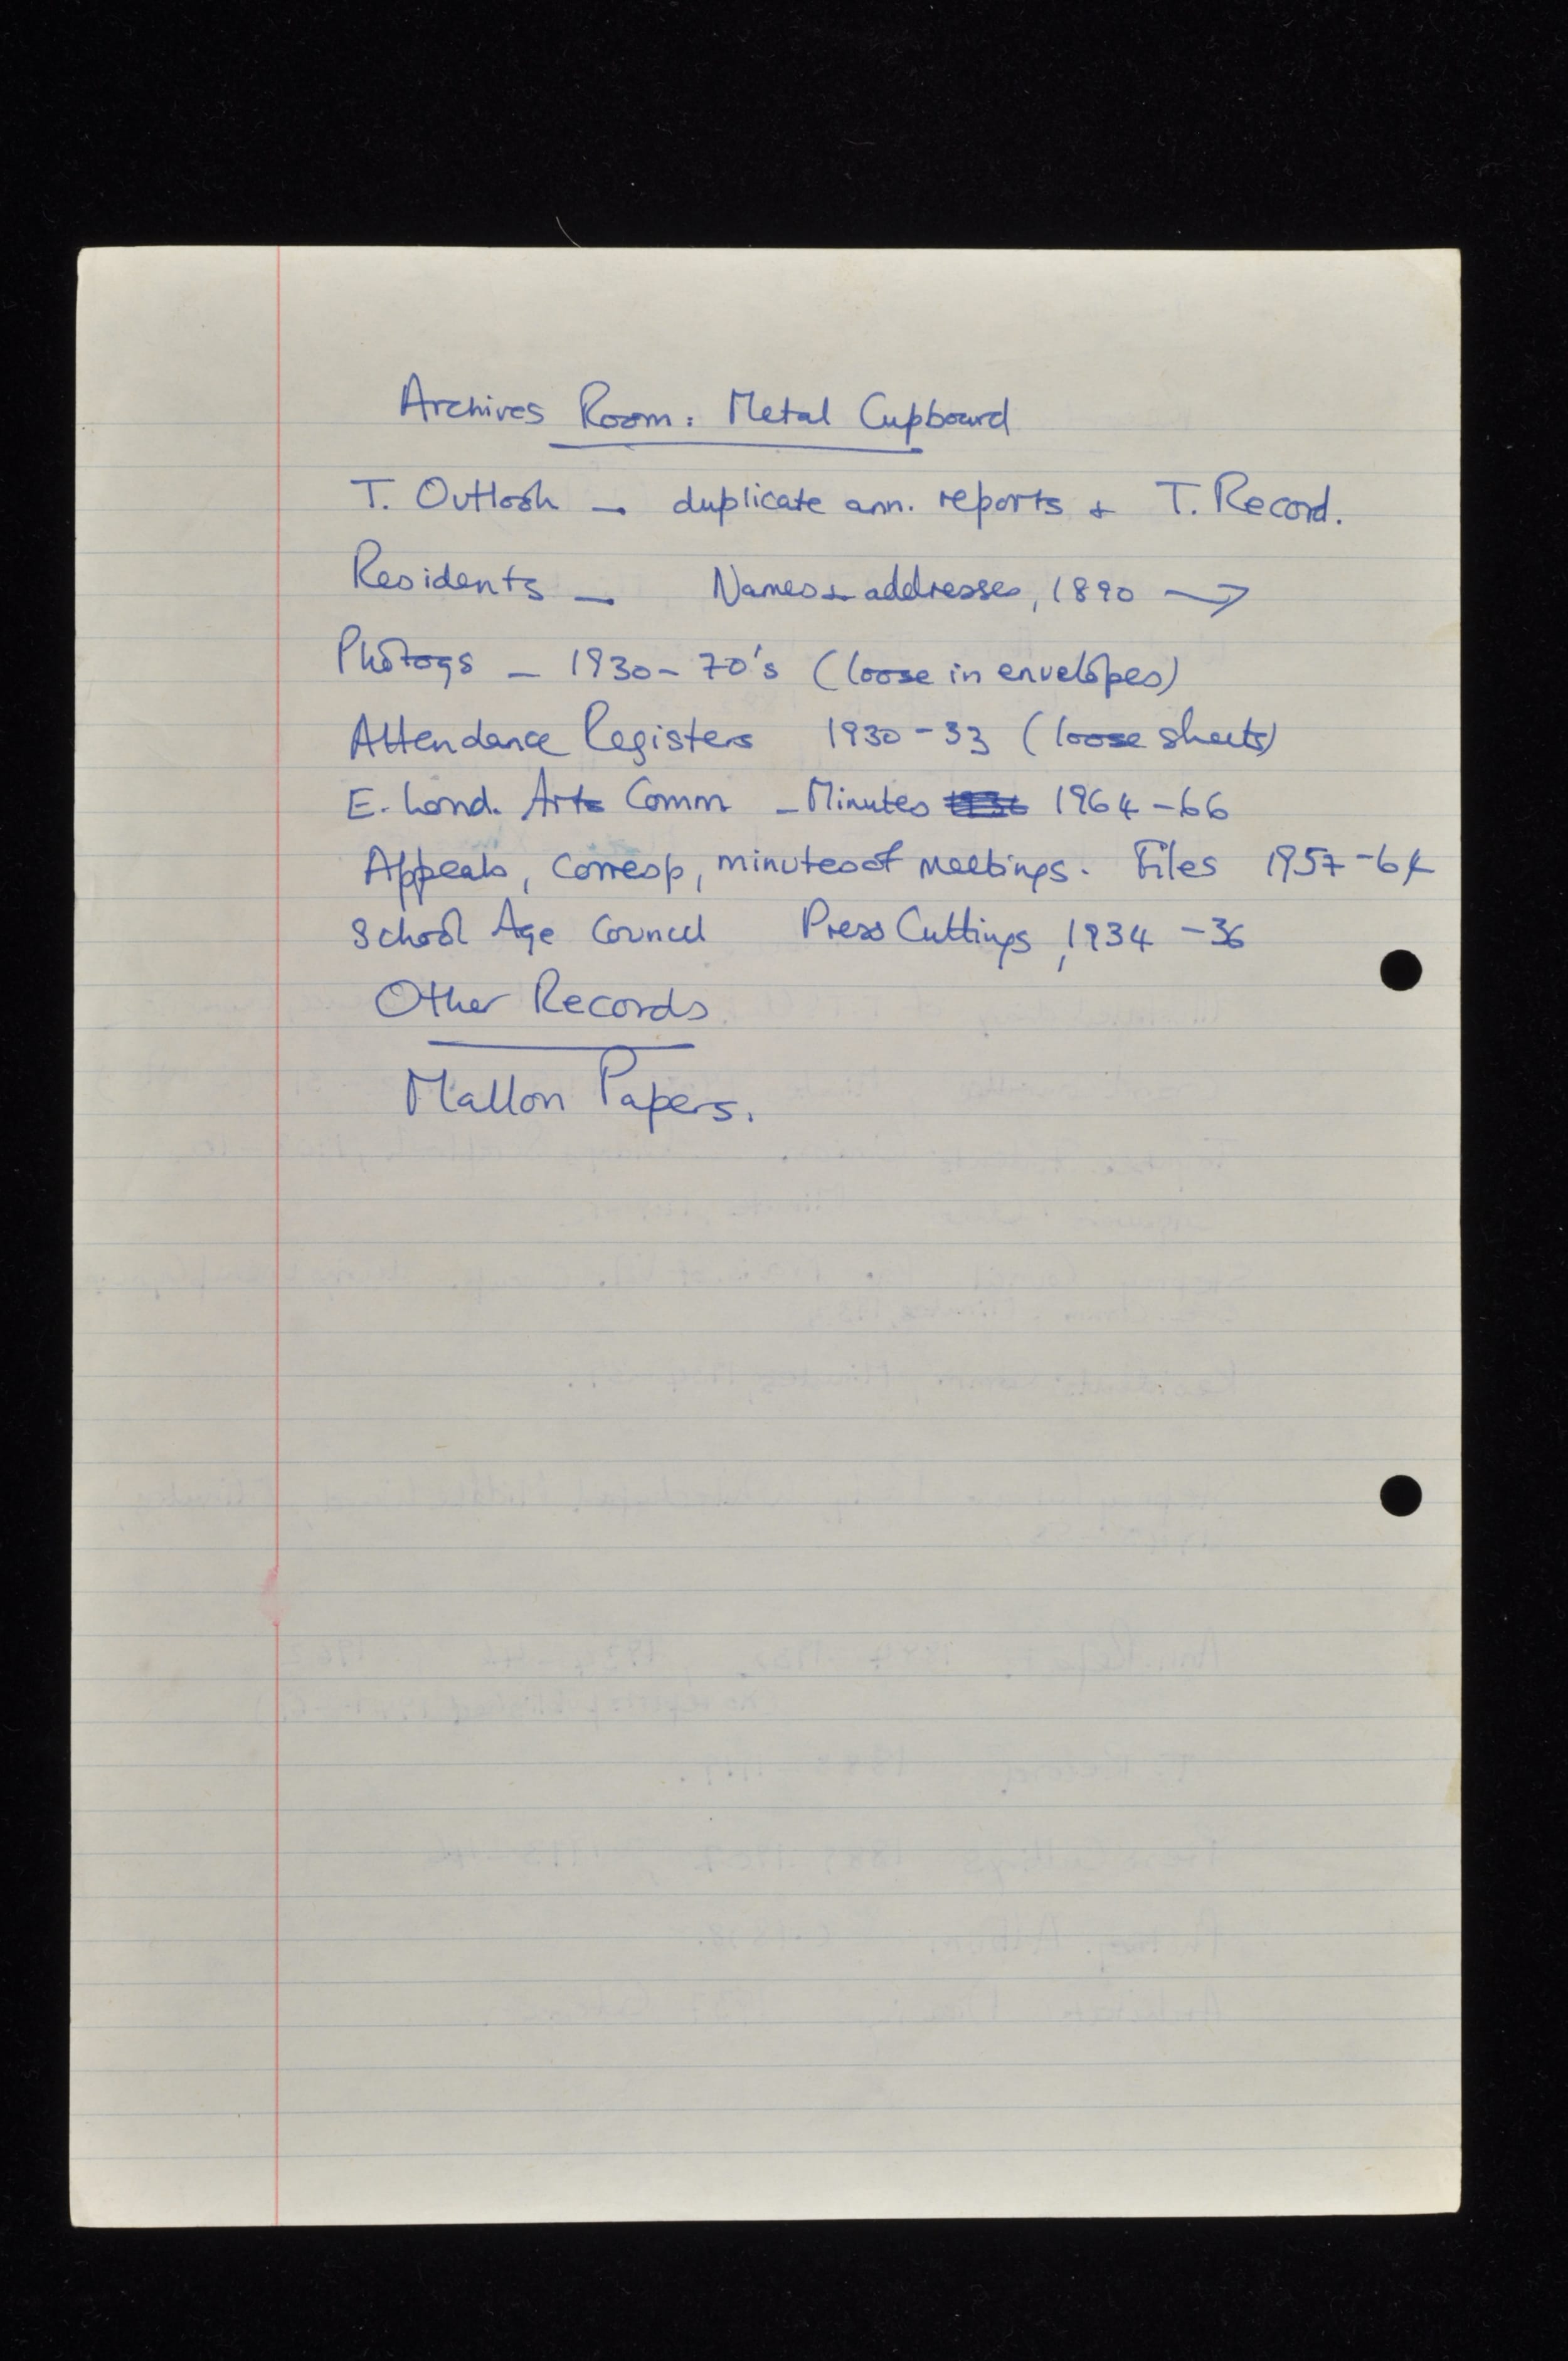 Archives Room: Metal Cupboard
T. Outlook – duplicate ann. reports + T. Record.
Residents – Names + addresses, 1890 →
Photogs – 1930–70's (loose in envelopes)
Attendance Registers 1930–33 (loose sheets)
E. Lond. Arts Comm – Minutes 1964–66
Appeals, corresp, minutes of meetings. Files 1957–64
School Age Council Press Cuttings, 1934–36
Other Records
Mallon Papers.